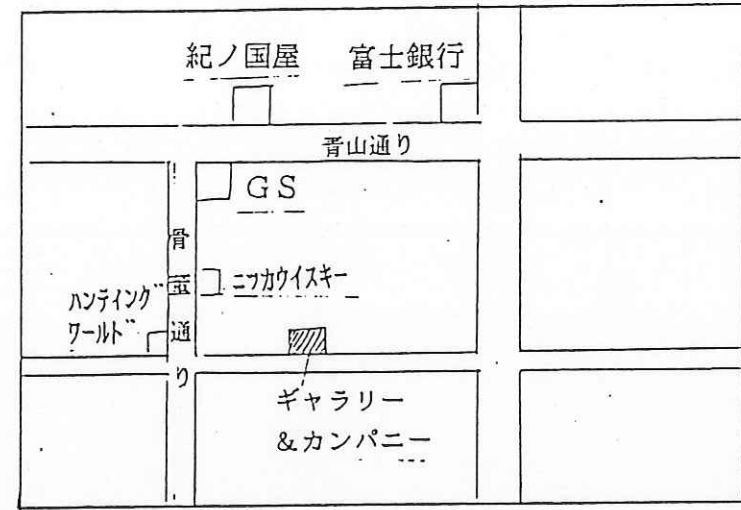 紀ノ国屋
富士銀行
青山通り
GS
骨董通り
ニッカウイスキー
ハンティング
ワールド
ギャラリー
&カンパニー